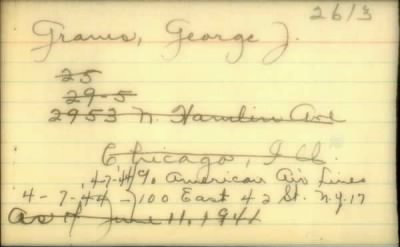 2613
Graves, George J.
25
29-5
2953 N. Hamlin Ave
Chicago, Ill.
4-7-44 % American Air Lines
4-7-44 - 100 East 42 St. N.Y. 17
As of June 11, 1941